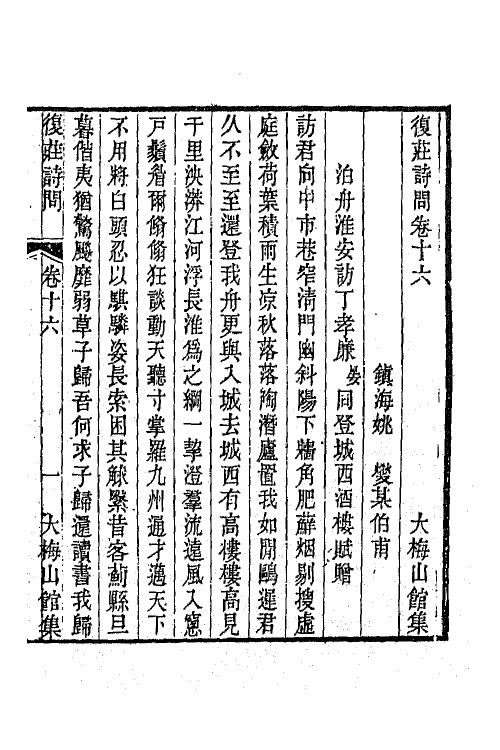 復莊詩問卷十六　大梅山館集
鎮海姚　燮某伯甫
泊舟淮安訪丁孝廉晏同登城西酒樓賦贈
訪君向中市巷窄清門幽斜陽下牆角肥蘚烟剔搜虛
庭斂荷葉積雨生凉秋落落陶潛廬置我如閒鷗遲君
久不至至還登我舟更與入城去城西有高樓樓高見
千里泱漭江河浮長淮爲之綱一挈澄羣流遠風入窻
戸鬚眉爾翛翛狂談動天聽寸掌羅九州通才邁天下
不用將白頭忍以騏驎姿長索困其觩緊昔客薊縣旦
暮偕夷猶驚飈靡弱草子歸吾何求子歸還讀書我歸
復莊詩問　卷十六　一　大梅山館集